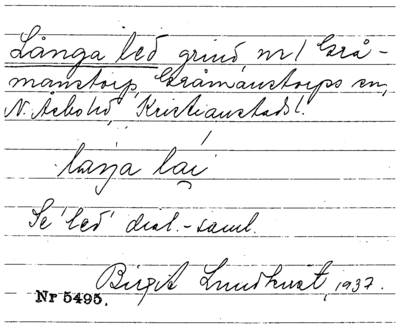 Långa led grind, nr 1 Grå-
manstorp, Gråmanstorps sn,
N. Åsbo hd, Kristianstads l.
laŋa lai
Se 'led' dial.-saml.
Birgit Lundkvist, 1937.
Nr 5495.